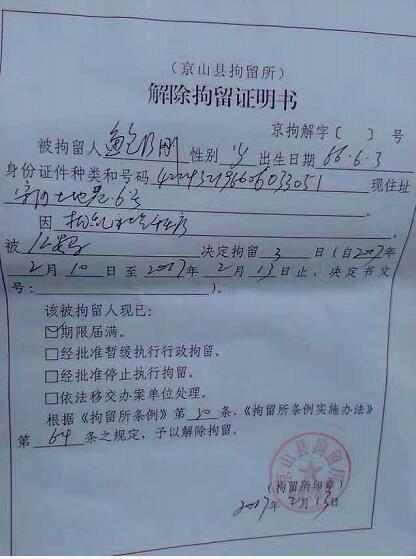 （京山县拘留所）
解除拘留证明书
京拘解字〔 〕号
被拘留人 鲍乃刚 性别 男 出生日期 66.6.3
身份证件种类和号码 现住址
6号
因 扰乱社会秩序
被 公安局 决定拘留 3 日（自2017年
2月10日至2017年2月13日止，决定书文
号： ）。
该被拘留人现已：
☑期限届满。
□经批准暂缓执行行政拘留。
□经批准停止执行拘留。
□依法移交办案单位处理。
根据《拘留所条例》第30条、《拘留所条例实施办法》
第64条之规定，予以解除拘留。
京山县拘留所
（拘留所印章）
2017年2月13日